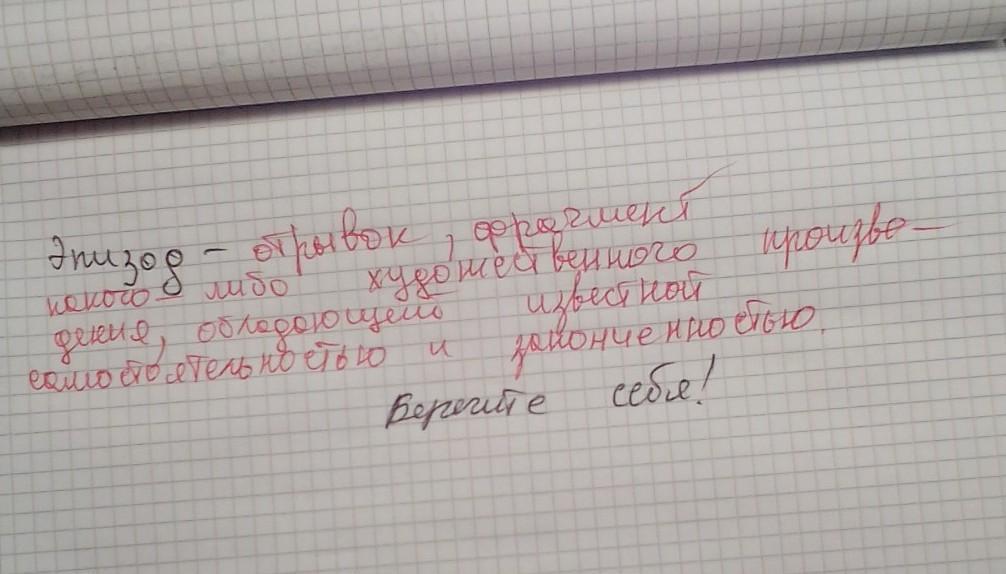 Эпизод – отрывок, фрагмент
какого-либо художественного произве-
дения, обладающего известной
самостоятельностью и законченностью.
Берегите себя!